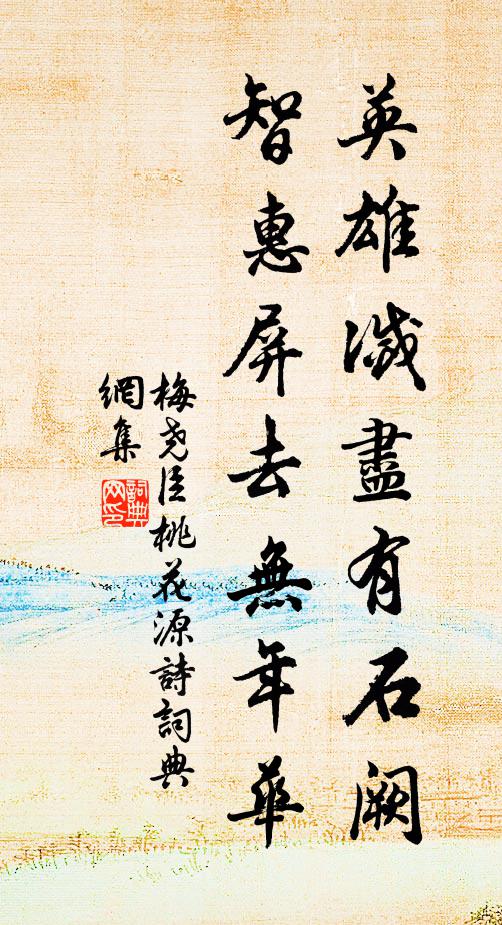 英雄滅盡有石闕
智惠屏去無年華
梅堯臣桃花源詩詞典
網集
詞典
网印